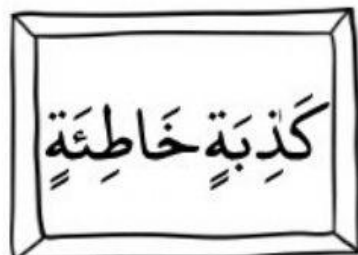 كَٰذِبَةٍ خَاطِئَةٍ